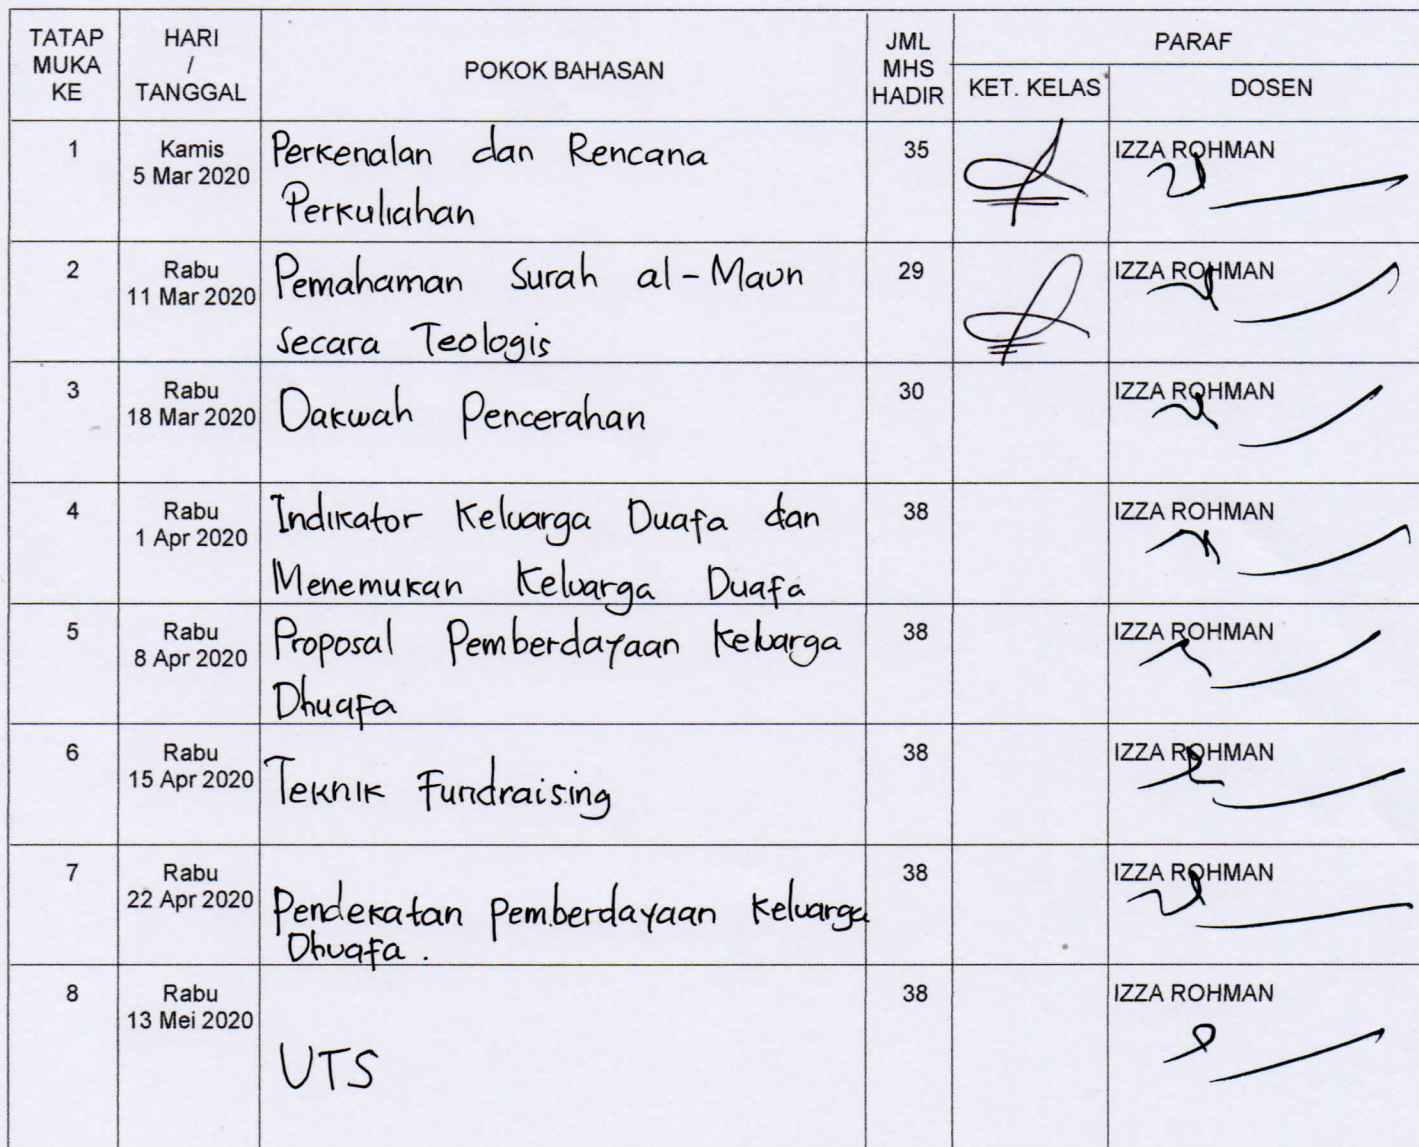 TATAP
MUKA
KE
HARI
/
TANGGAL
POKOK BAHASAN
JML
MHS
HADIR
PARAF
KET. KELAS
DOSEN
1
Kamis
5 Mar 2020
Perkenalan dan Rencana
Perkuliahan
35
IZZA ROHMAN
2
Rabu
11 Mar 2020
Pemahaman Surah al-Maun
secara Teologis
29
IZZA ROHMAN
3
Rabu
18 Mar 2020
Dakwah Pencerahan
30
IZZA ROHMAN
4
Rabu
1 Apr 2020
Indikator Keluarga Duafa dan
Menemukan Keluarga Duafa
38
IZZA ROHMAN
5
Rabu
8 Apr 2020
Proposal Pemberdayaan Keluarga
Dhuafa
38
IZZA ROHMAN
6
Rabu
15 Apr 2020
Teknik Fundraising
38
IZZA ROHMAN
7
Rabu
22 Apr 2020
Pendekatan Pemberdayaan Keluarga
Dhuafa.
38
IZZA ROHMAN
8
Rabu
13 Mei 2020
UTS
38
IZZA ROHMAN